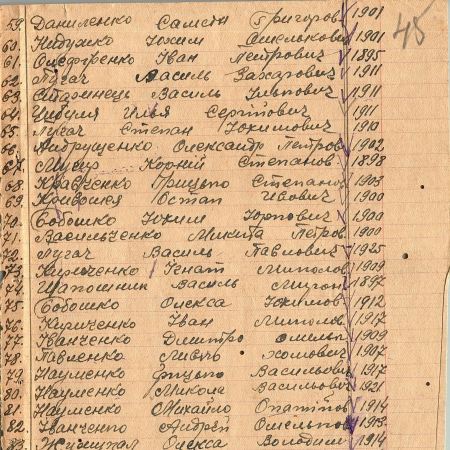 45
59. Даниленко Самсон Григоров 1901
60. Нидушко Юхим Омелькович 1901
61. Олефіренко Іван Петрович 1895
62. Пугач Василь Захарович 1911
63. Старинець Василь Ількович 1911
64. Цибуля Илья Сергійович 1911
65. Пугач Степан Юхимович 1910
66. Андрущенко Олександр Петров 1902
67. Корній Степанов 1898
68. Кравченко Грицько Степанов 1903
69. Кривошея Остап Івович 1900
70. Бобошко Юхим Юрпович 1900
71. Васильченко Микита Петров 1900
72. Пугач Василь Павлович 1925
73. Кириченко Ігнат 1909
74. Шапошник Василь Мирон 1897
75. Бобошко Олекса Юхимов 1912
76. Кириченко Іван 1917
77. Іванченко Дмитро Омельк 1909
78. Павленко Хомович 1907
79. Науменко Грицько Васильович 1917
80. Науменко Микола Васильович 1921
81. Науменко Михайло 1914
82. Іванченко Андрей Омельков 1913
83. Олекса Володим 1914